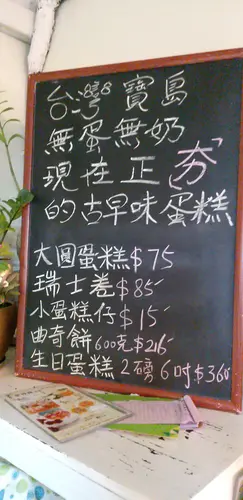 台灣寶島
無蛋無奶
現在正夯
的古早味蛋糕
大圓蛋糕$75
瑞士卷$85
小蛋糕仔$15
曲奇餅600克$216
生日蛋糕2磅6吋$360